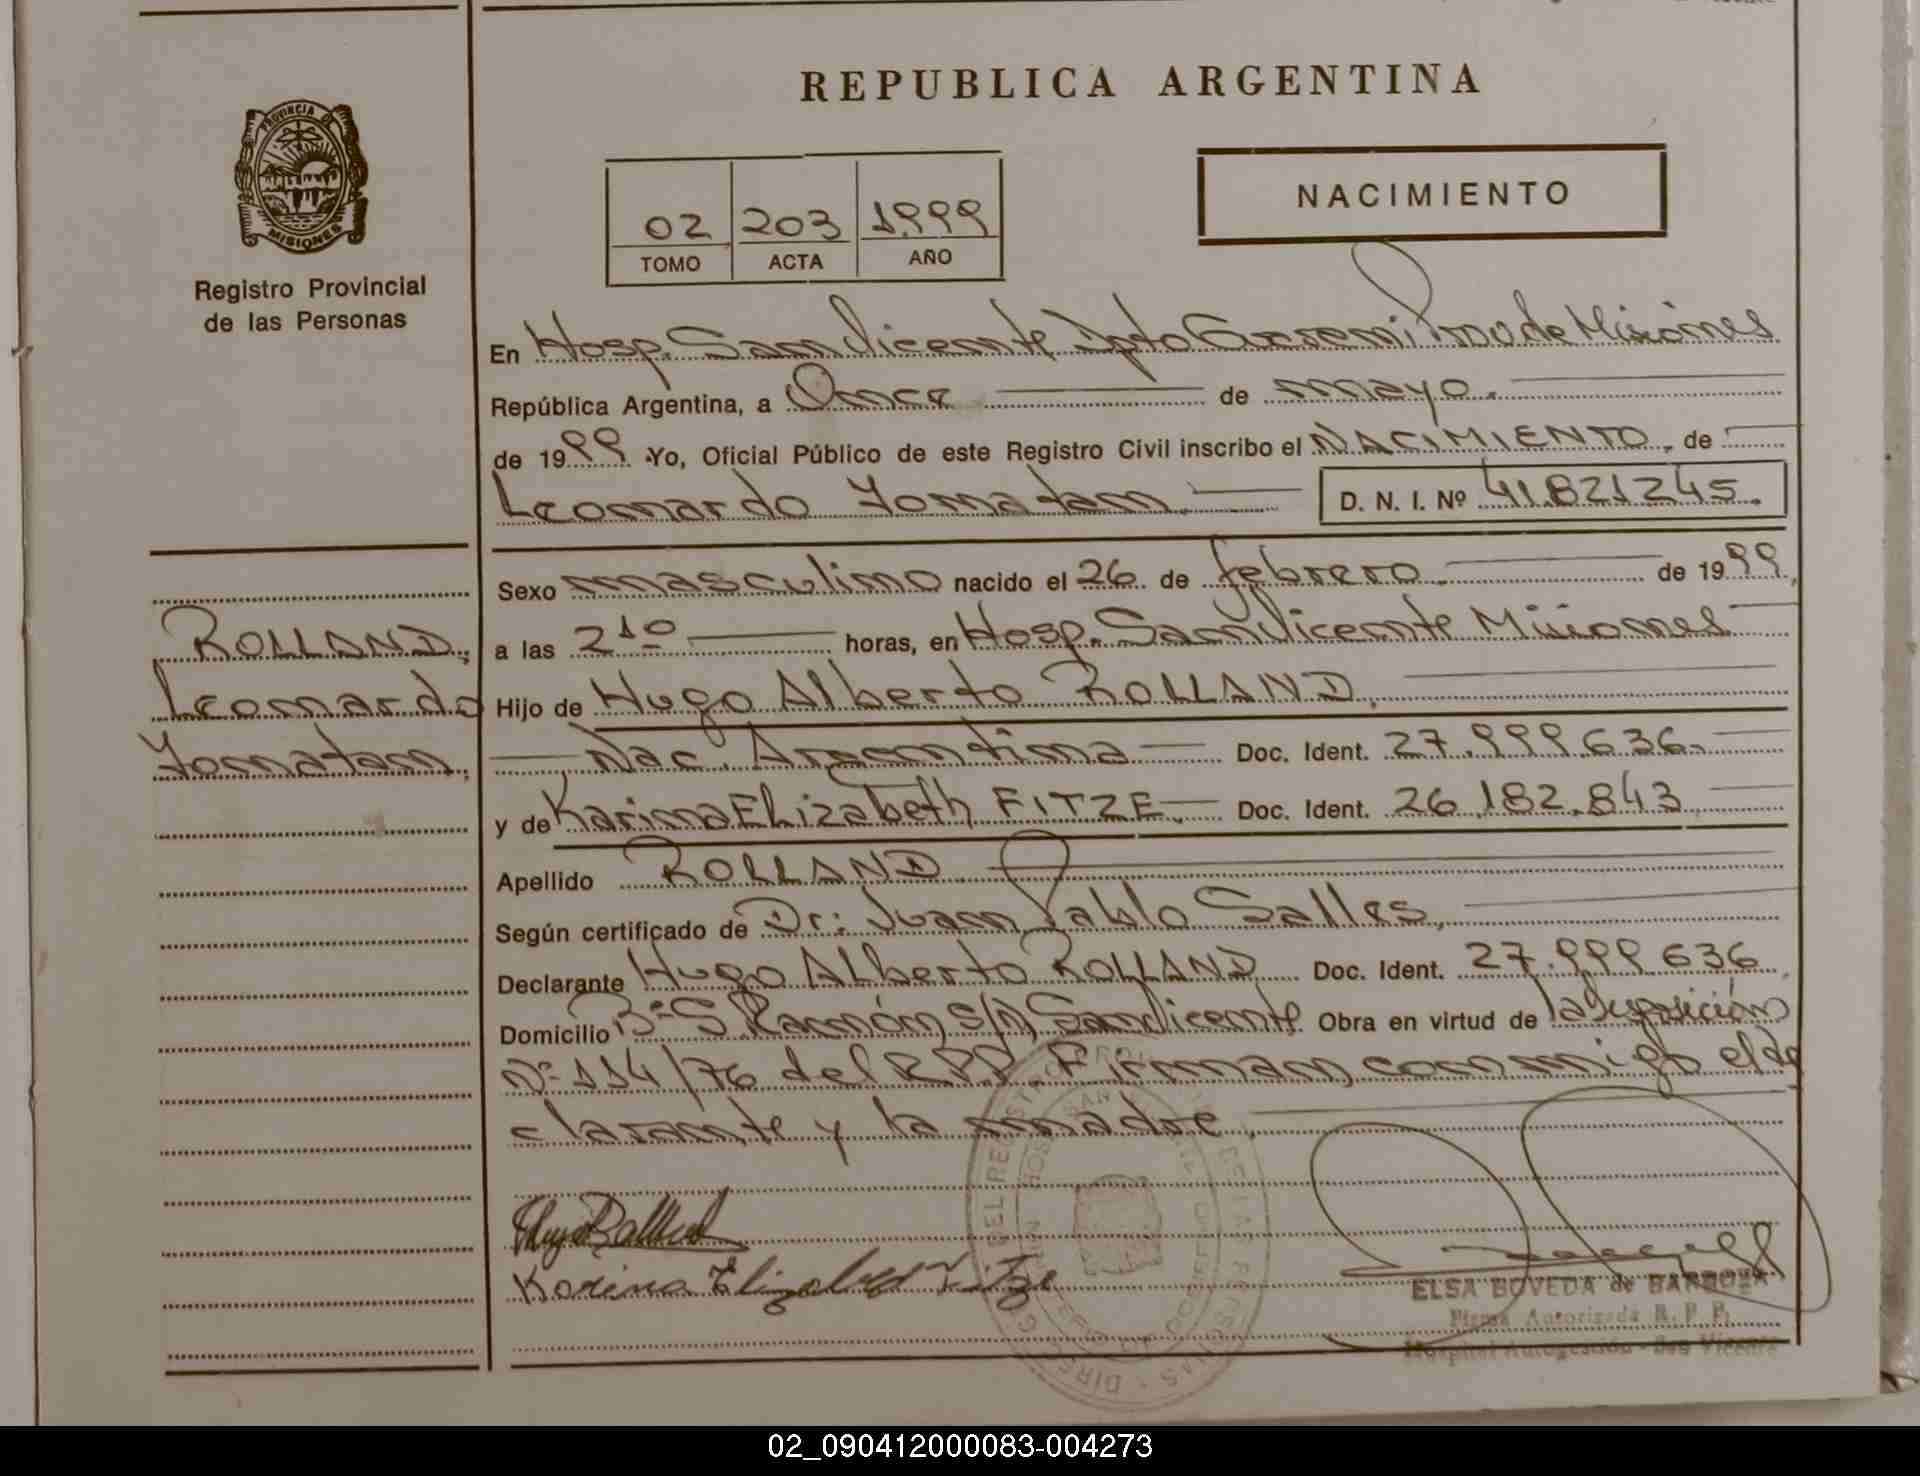 REPUBLICA ARGENTINA
PROVINCIA DE
MISIONES
Registro Provincial
de las Personas
02 203 1999
TOMO ACTA AÑO
NACIMIENTO
En Hosp. San Vicente Dpto Guarani Pvo de Misiones
República Argentina, a Once de mayo.
de 1999 Yo, Oficial Público de este Registro Civil inscribo el NACIMIENTO, de
Leonardo Yonatan D. N. I. Nº 41.821.245.
Sexo masculino nacido el 26 de febrero. de 1999,
ROLLAND,
a las 2 10 horas, en Hosp. San Vicente Misiones
Leonardo
Hijo de Hugo Alberto ROLLAND,
Yonatan,
Nac. Argentina Doc. Ident. 27.999.636.
y de Karina Elizabeth FITZE. Doc. Ident. 26.182.843
Apellido ROLLAND
Según certificado de Dr: Juan Pablo Salles,
Declarante Hugo Alberto ROLLAND Doc. Ident. 27.999.636
Domicilio Bº S. Ramón, s/n, San Vicente Obra en virtud de la Disposición
Nº 114/76 del R.P.P. Firman conmigo el de
clarante y la madre.
Hugo Rolland
Karina Elizabeth Fitze
ELSA BOVEDA de BARBOZA
Firma Autorizada R. P. P.
Hospital Autogestión - San Vicente
02_090412000083-004273